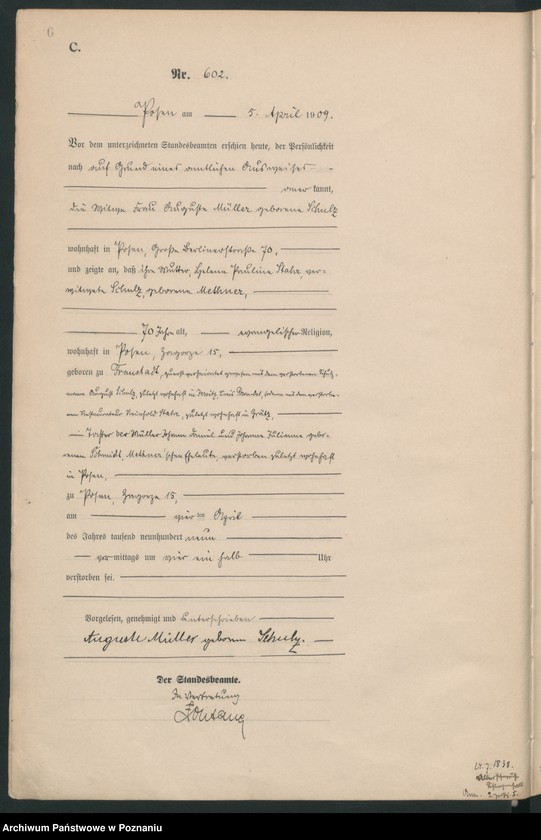 6
C.
Nr. 602.
Posen am 5. April 1909.
Vor dem unterzeichneten Standesbeamten erschien heute, der Persönlichkeit
nach auf Grund eines amtlichen Ausweises
anerkannt,
die Witwe Frau Auguste Müller geborene Schulz
wohnhaft in Posen, Große Berlinerstraße 70,
und zeigte an, daß ihre Mutter, Helene Pauline Stahr, ver-
witwete Schulz, geborene Methner,
70 Jahre alt, evangelischer Religion,
wohnhaft in Posen, Zagorze 15,
geboren zu Fraustadt, zuerst verheiratet gewesen mit dem verstorbenen
August Schulz, zuletzt wohnhaft in sodann mit dem verstorbe-
nen Restaurateur Reinhold Stahr, zuletzt wohnhaft in Grätz,
Tochter der Müller Johann Daniel und Johanne Juliane gebo-
renen Schmidt, Methner'schen Eheleute, verstorben zuletzt wohnhaft
in Posen,
zu Posen, Zagorze 15,
am vierten April
des Jahres tausend neunhundert neun
vormittags um vier ein halb Uhr
verstorben sei.
Vorgelesen, genehmigt und unterschrieben
Auguste Müller geborene Schulz.
Der Standesbeamte.
In Vertretung
Archiwum Państwowe w Poznaniu